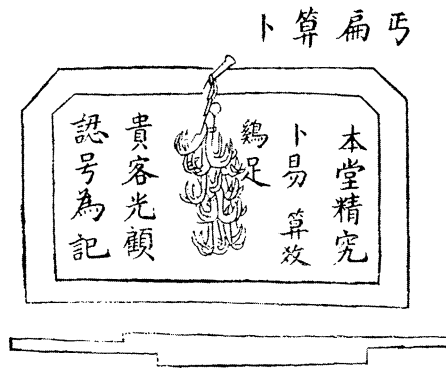 丐扁算卜
本堂精究
卜易算效
鷄足
貴客光顧
認号為記